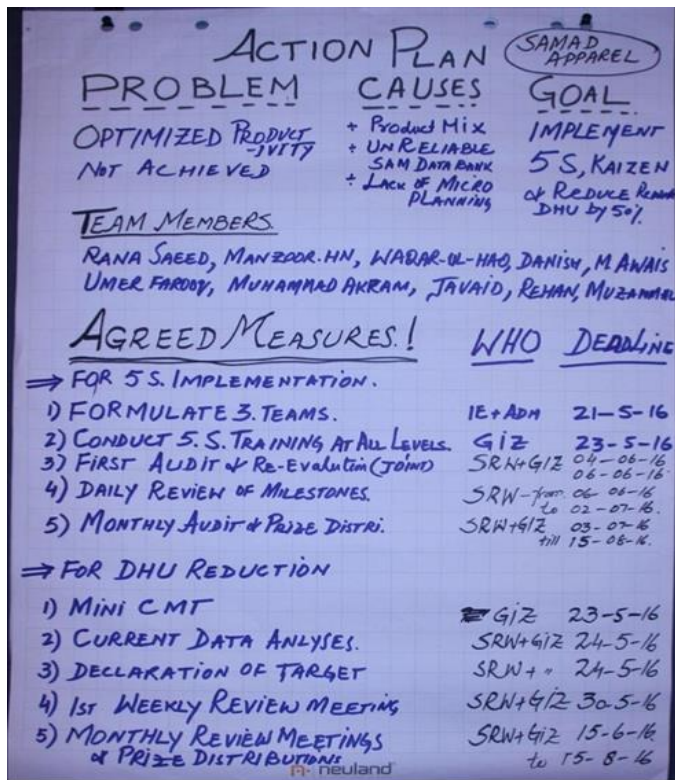 ACTION PLAN
SAMAD
APPAREL
PROBLEM
OPTIMIZED PRODUCT
-IVITY
NOT ACHIEVED
CAUSES
+ Product Mix
+ UNRELIABLE
SAM DATA BANK
+ LACK OF MICRO
PLANNING
GOAL
IMPLEMENT
5 S, KAIZEN
& REDUCE
DHU by 50%
TEAM MEMBERS
RANA SAEED, MANZOOR.HN, WAQAR-UL-HAQ, DANISH, M.AWAIS
UMER FAROOQ, MUHAMMAD AKRAM, JAVAID, REHAN, MUZAMMAL
AGREED MEASURES! WHO DEADLINE
⇒ FOR 5 S. IMPLEMENTATION.
1) FORMULATE 3. TEAMS. IE + ADM 21-5-16
2) CONDUCT 5. S. TRAINING AT ALL LEVELS. GIZ 23-5-16
3) FIRST AUDIT & RE-EVALUTION (JOINT) SRW+GIZ 04-06-16
06-06-16
4) DAILY REVIEW OF MILESTONES. SRW- from 06-06-16
to 02-07-16
5) MONTHLY AUDIT & PRIZE DISTRI. SRW+GIZ 03-07-16
till 15-08-16.
⇒ FOR DHU REDUCTION
1) MINI CMT GIZ 23-5-16
2) CURRENT DATA ANLYSES. SRW+GIZ 24-5-16
3) DECLARATION OF TARGET SRW + " 24-5-16
4) 1ST WEEKLY REVIEW MEETING SRW+GIZ 30-5-16
5) MONTHLY REVIEW MEETINGS SRW+GIZ 15-6-16
& PRIZE DISTRIBUTIONS to 15-8-16
neuland